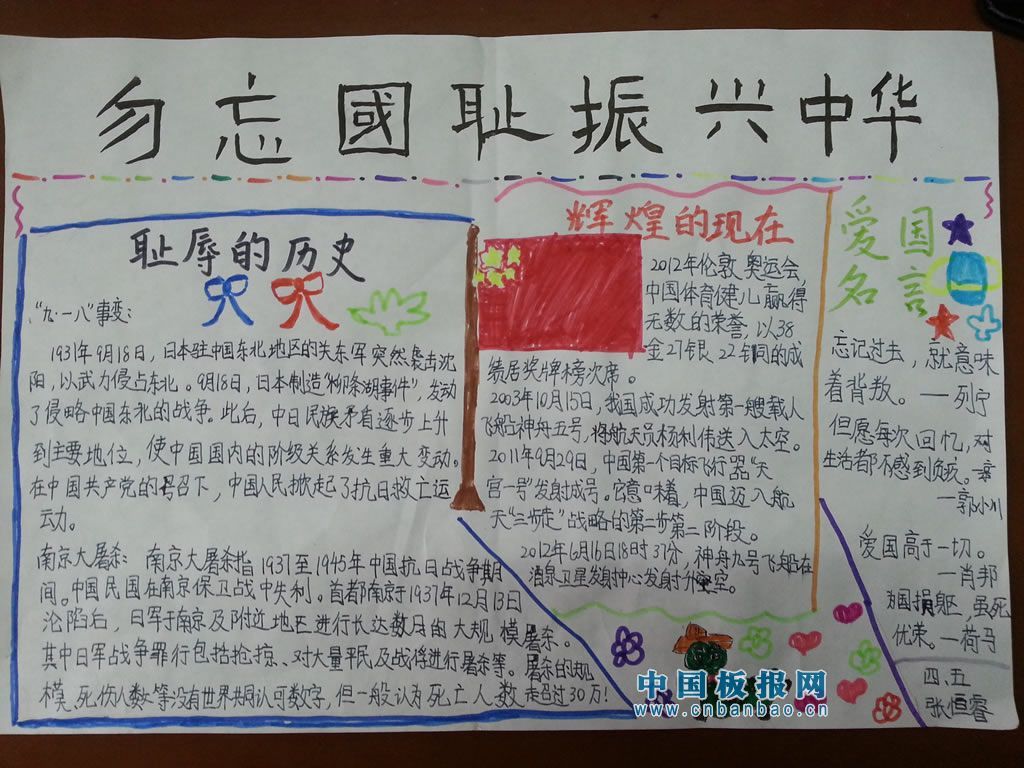 勿忘國耻振兴中华
耻辱的历史
“九·一八”事变：
1931年9月18日，日本驻中国东北地区的关东军突然袭击沈
阳，以武力侵占东北。9月18日，日本制造“柳条湖事件”，发动
了侵略中国东北的战争。此后，中日民族矛盾逐步上升
到主要地位，使中国国内的阶级关系发生重大变动。
在中国共产党的号召下，中国人民掀起了抗日救亡运
动。
南京大屠杀：南京大屠杀指1937至1945年中国抗日战争期
间。中国民国在南京保卫战中失利。首都南京于1937年12月13日
沦陷后，日军于南京及附近地区进行长达数月的大规模屠杀。
其中日军战争罪行包括抢掠、对大量平民及战俘进行屠杀等。屠杀的规
模、死伤人数等没有世界共同认可数字，但一般认为死亡人数超过30万！
辉煌的现在
2012年伦敦奥运会，
中国体育健儿赢得
无数的荣誉，以38
金27银22铜的成
绩居奖牌榜次席。
2003年10月15日，我国成功发射第一艘载人
飞船神舟五号，将航天员杨利伟送入太空。
2011年9月29日，中国第一个目标飞行器“天
宫一号”发射成号。它意味着，中国迈入航
天“三步走”战略的第二步第二阶段。
2012年6月16日18时37分，神舟九号飞船在
酒泉卫星发射中心发射升空。
爱国
名言
忘记过去，就意味
着背叛。—列宁
但愿每次回忆，对
生活都不感到负疚。
—郭小川
爱国高于一切。
—肖邦
为国捐躯，虽死
优荣。—荷马
四、五
张恒睿
中国板报网
www.cnbanbao.cn